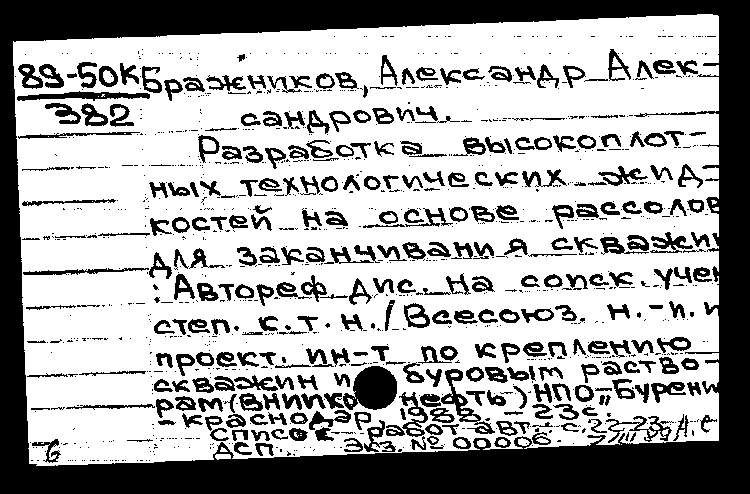 89-50к
382
Бражников, Александр Алек-
сандрович.
Разработка высокоплот-
ных технологических жид-
костей на основе рассолов
для заканчивания скважин
: Автореф. дис. на соиск. учен
степ. к.т.н./Всесоюз. н.-и. и
проект. ин-т по креплению
скважин и буровым раство-
рам (ВНИИКрнефть) НПО „Бурени
- Краснодар, 1988. - 23с.
Список работ авт.: с. 22-23
ДСП. Экз. № 00006.
б